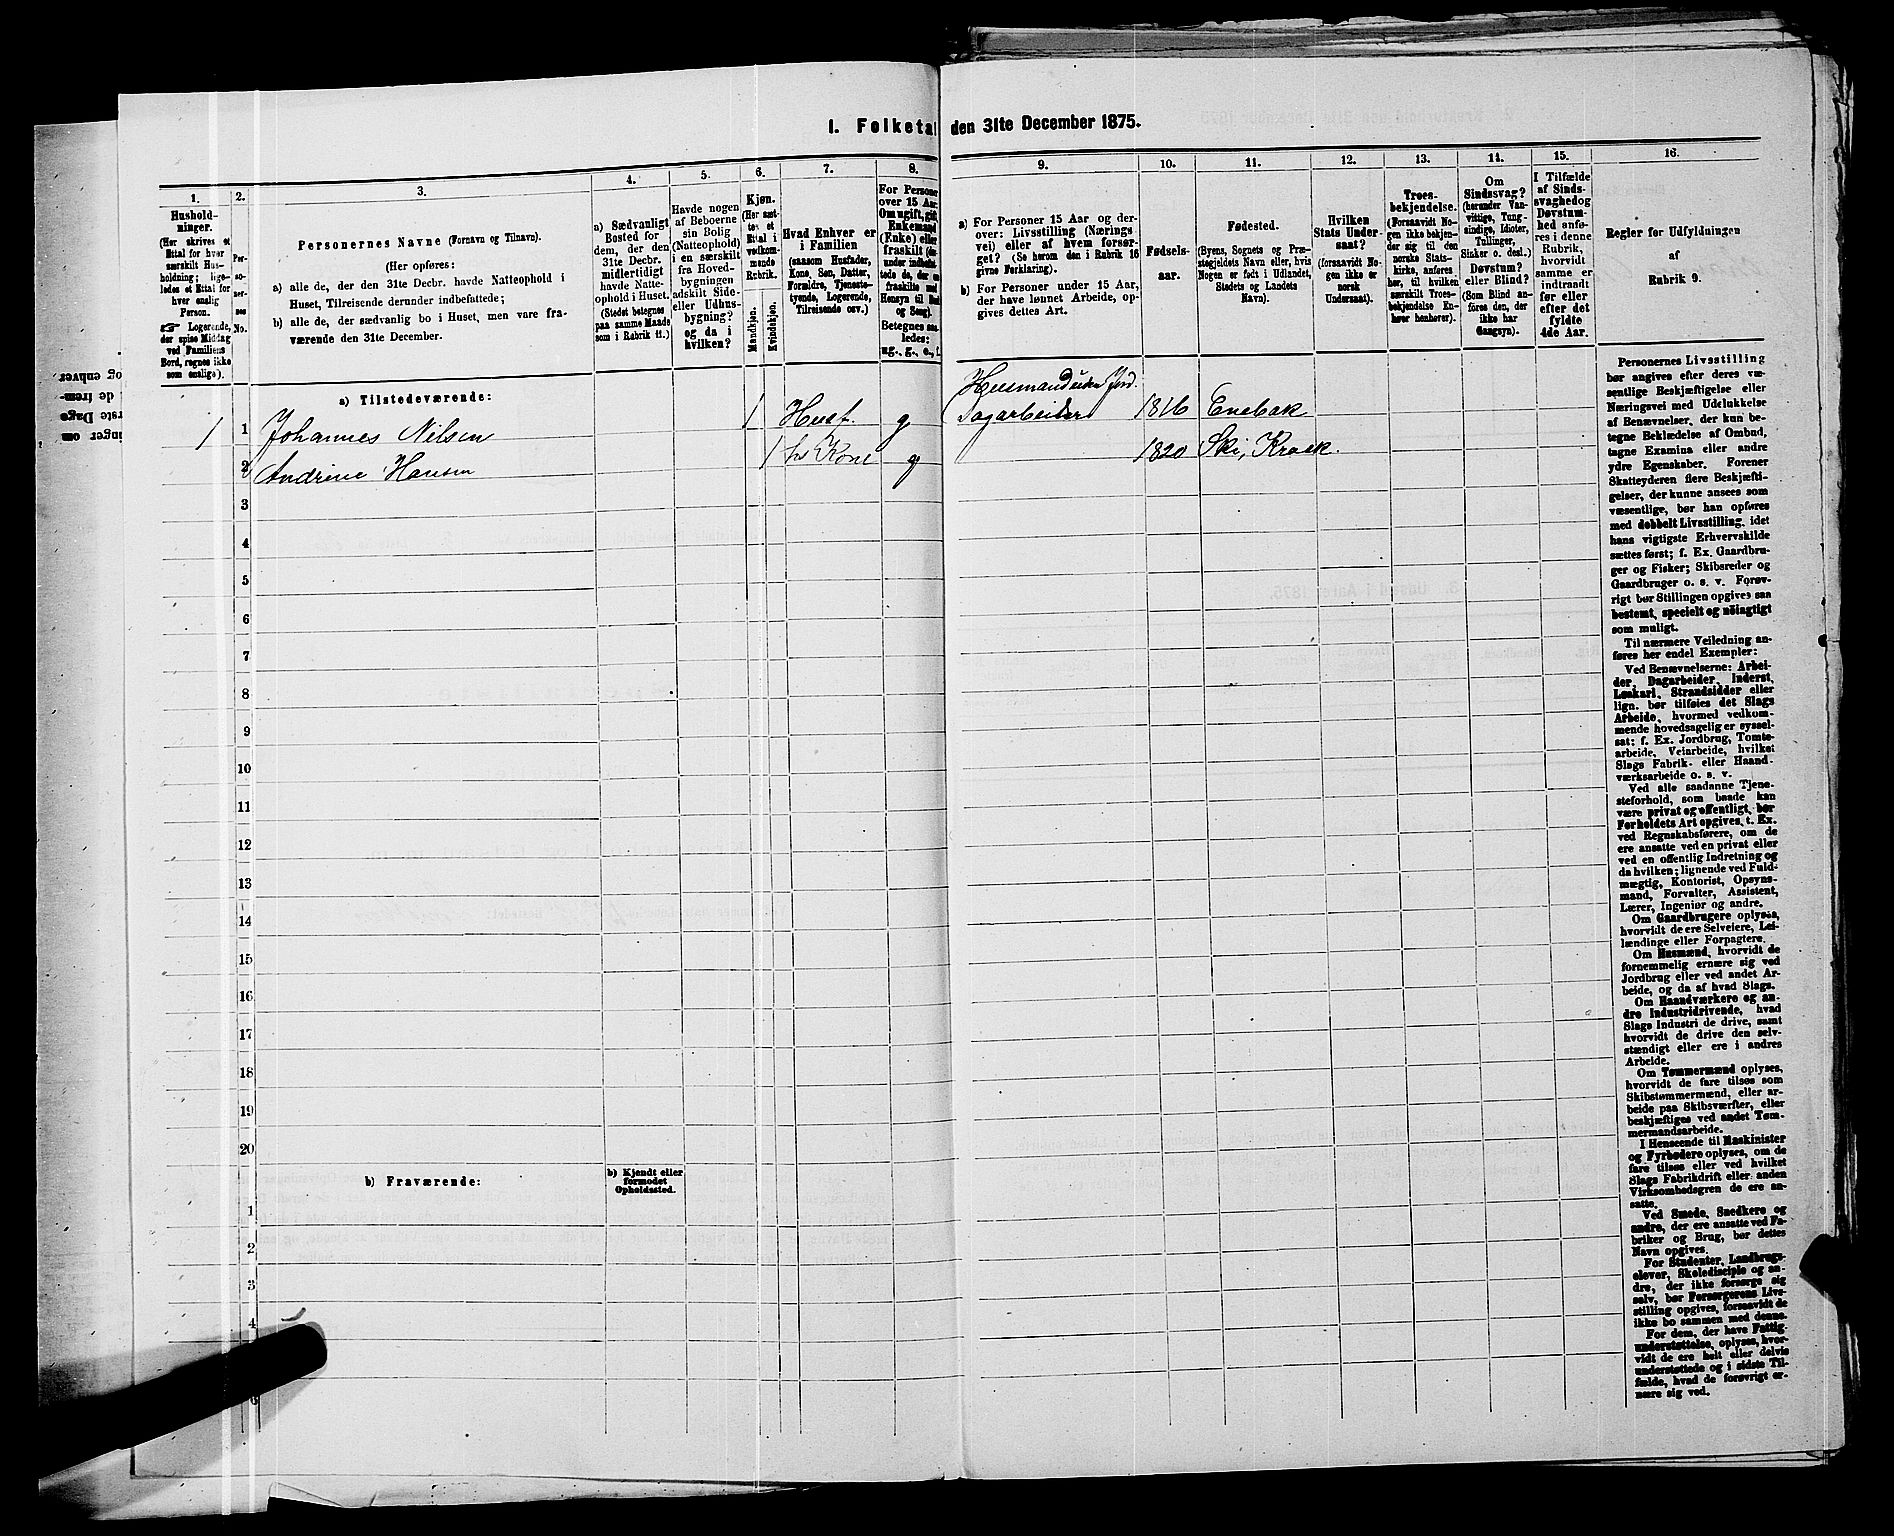 I. Folketal den 31te December 1875.
1.
Hushold-
ninger.
(Her skrives et
Ettal for hver
særskilt Hus-
holdning; lige-
ledes et Ettal for
hver enslig
Person.
☞ Logerende,
der spise Middag
ved Familiens
Bord, regnes ikke
som enslige).
2.
Per-
so-
ner-
nes
No.
3.
Personernes Navne (Fornavn og Tilnavn).
(Her opføres:
a) alle de, der den 31te Decbr. havde Natteophold i
Huset, Tilreisende derunder indbefattede;
b) alle de, der sædvanlig bo i Huset, men vare fra-
værende den 31te December.
4.
a) Sædvanligt
Bosted for
dem, der den
31te Decbr.
midlertidigt
havde Natte-
ophold i Huset.
(Stedet betegnes
paa samme Maade
som i Rubrik 11.)
5.
Havde nogen
af Beboerne
sin Bolig
(Natteophold)
i en særskilt
fra Hoved-
bygningen
adskilt Side-
eller Udhus-
bygning?
og da i
hvilken?
6.
Kjøn.
(Her sæt-
tes et
Ettal i
vedkom-
mende
Rubrik.
Mandkjøn.
Kvindekjøn.
7.
Hvad Enhver er
i Familien
(saasom Husfader,
Kone, Søn, Datter,
Forældre, Tjeneste-
tyende, Logerende,
Tilreisende osv.)
8.
For Personer
over 15 Aar:
Om ugift, gift,
Enkemand
(Enke) eller
fraskilt
Betegnes saa-
ledes:
ug., g., e., f.
9.
a) For Personer 15 Aar og der-
over: Livsstilling (Nærings
vei) eller af hvem forsør-
get? (Se herom den i Rubrik 16
givne Forklaring).
b) For Personer under 15 Aar,
der have lønnet Arbeide, op-
gives dettes Art.
10.
Fødsels-
aar.
11.
Fødested.
(Byens, Sognets og Præ-
stegjeldets Navn eller, hvis
Nogen er født i Udlandet,
Stedets og Landets
Navn).
12.
Hvilken
Stats Under-
saat?
(forsaavidt No-
gen ikke er
norsk
Undersaat).
13.
Troes-
bekjendelse.
(Forsaavidt No-
gen ikke bekjen-
der sig til den
norske Stats-
kirke, anføres
her, til hvilken
særskilt Troes-
bekjendelse En-
hver henhører).
14.
Om
Sindssvag?
(herunder Van-
vittige, Tung-
sindige, Idioter,
Tullinger,
Sinker o. desl.)
Døvstum?
eller Blind?
(Som Blind an-
føres den, der
ikke har
Gangsyn).
15.
I Tilfælde
af Sinds-
svaghed og
Døvstum-
hed anfø-
res i denne
Rubrik,
hvorvidt
samme er
indtraadt
før eller
efter det
fyldte
4de Aar.
16.
Regler for Udfyldningen
af
Rubrik 9.
a) Tilstedeværende:
Husmand uden Jord.
1 1 Johannes Nilsen 1 Husf. g Dagarbeider 1816 Enebak
2 Andrine Hansen 1 hs Kone g 1820 Ski, Kraak.
3
4
5
6
7
8
9
10
11
12
13
14
15
16
17
18
19
20
b) Fraværende:
b) Kjendt eller
formodet
Opholdssted.
1
2
3
4
6
Personernes Livsstilling
bør angives efter deres væ-
sentlige Beskjæftigelse eller
Næringsvei med Udelukkelse
af Benævnelser, der kun be-
tegne Beklædelse af Ombud,
tagne Examina eller andre
ydre Egenskaber. Forener
Skatteyderen flere Beskjæfti-
gelser, der kunne ansees som
væsentlige, bør han opføres
med dobbelt Livsstilling, idet
hans vigtigste Erhvervskilde
sættes først; f. Ex. Gaardbru-
ger og Fisker; Skibsreder og
Gaardbruger o. s. v. Forøv-
rigt bør Stillingen opgives saa
bestemt, specielt og nöiagtigt
som muligt.
Til nærmere Veiledning an-
føres her endel Exempler:
Ved Benævnelserne: Arbei-
der, Dagarbeider, Inderst,
Løskarl, Strandsidder eller
lign. bør tilføies det Slags
Arbeide, hvormed vedkom-
mende hovedsagelig er syssel-
sat; f. Ex. Jordbrug, Tomte-
arbeide, Veiarbeide, hvilket
Slags Fabrik- eller Haand-
værksarbeide o. s. v.
Ved alle saadanne Tjene-
steforhold, som baade kan
være privat og offentligt, bør
Forholdets Art opgives, t. Ex.
ved Regnskabsførere, om de
ere ansatte ved en privat eller
ved en offentlig Indretning og
da hvilken; lignende ved Fuld-
mægtig, Kontorist, Opsyns-
mand, Forvalter, Assistent,
Lærer, Ingeniør og andre.
Om Gaardbrugere oplyses,
hvorvidt de ere Selveiere, Lei-
lændinge eller Forpagtere.
Om Husmænd, hvorvidt de
fornemmelig ernære sig ved
Jordbrug eller ved andet Ar-
beide, og da af hvad Slags.
Om Haandværkere og an-
dre Industridrivende, hvad
Slags Industri de drive, samt
hvorvidt de drive den selv-
stændigt eller ere i andres
Arbeide.
Om Tømmermænd oplyses,
hvorvidt de fare tilsøs som
Skibstømmermænd, eller ar-
beide paa Skibsværfter, eller
beskjæftiges ved andet Tøm-
mermandsarbeide.
I Henseende til Maskinister
og Fyrbødere oplyses, om de
fare tilsøs eller ved hvilket
Slags Fabrikdrift eller anden
Virksomhedsgren de ere an-
satte.
Ved Smede, Snedkere og
andre, der ere ansatte ved Fa-
briker og Brug, bør dettes
Navn opgives.
For Studenter, Landbrugs-
elever, Skoledisciple og an-
dre, der ikke forsørge sig
selv, bør Forsørgerens Livs-
stilling opgives, forsaavidt de
ikke bo sammen med denne.
For dem, der have Fattig-
understøttelse, oplyses, hvor-
vidt de ere helt eller delvis
understøttede og i sidste Til-
fælde, hvad de forøvrigt er-
nære sig ved.